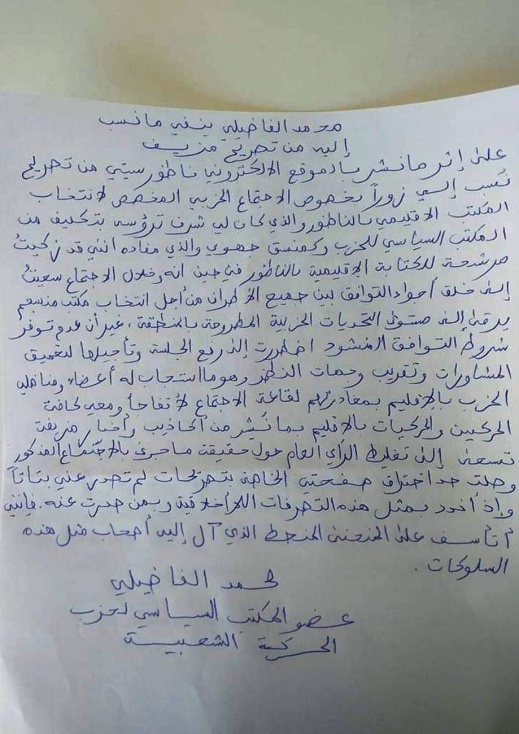 محمد الفاضيلي ينفي ما نسب
إليه من تصريح مزيف
على إثر ما نشر بالموقع الالكتروني ناظورسيتي من تصريح
نُسب إلي زوراً بخصوص الاجتماع الحزبي المخصص لانتخاب
المكتب الاقليمي بالناظور والذي كان لي شرف ترؤسه بتكليف من
المكتب السياسي للحزب وكمنسق جهوي والذي مفاده أنني قد زكيتُ
مرشحة للكتابة الاقليمية بالناظور في حين انه وخلال الاجتماع سعيتُ
إلى خلق أجواء التوافق بين جميع الاطراف من أجل انتخاب مكتب منسجم
يرقى إلى مستوى التحديات الحزبية المطروحة بالمنطقة، غير أن عدم توفر
شروط التوافق المنشود اضطررت إلى رفع الجلسة وتأجيلها لتعميق
المشاورات وتقريب وجهات النظر وهو ما استجاب له أعضاء ومناضلي
الحزب بالاقليم بمغادرتهم لقاعة الاجتماع لأتفاجأ ومعي كافة
الحركيين والحركيات بالاقليم بما نُشر من أكاذيب وأخبار مزيفة
تسعى إلى تغليط الرأي العام حول حقيقة ما جرى بالاجتماع المذكور
وصلت حد اختراق صفحتي الخاصة بتصريحات لم تصدر عني بتاتاً
وإذ أندد بمثل هذه التصرفات اللاأخلاقية وبمن صدرت عنه. فإنني
أتأسف على المنحنى المنحط الذي آل إليه أصحاب مثل هذه
السلوكات .
محمد الفاضيلي
عضو المكتب السياسي لحزب
الحركة الشعبية